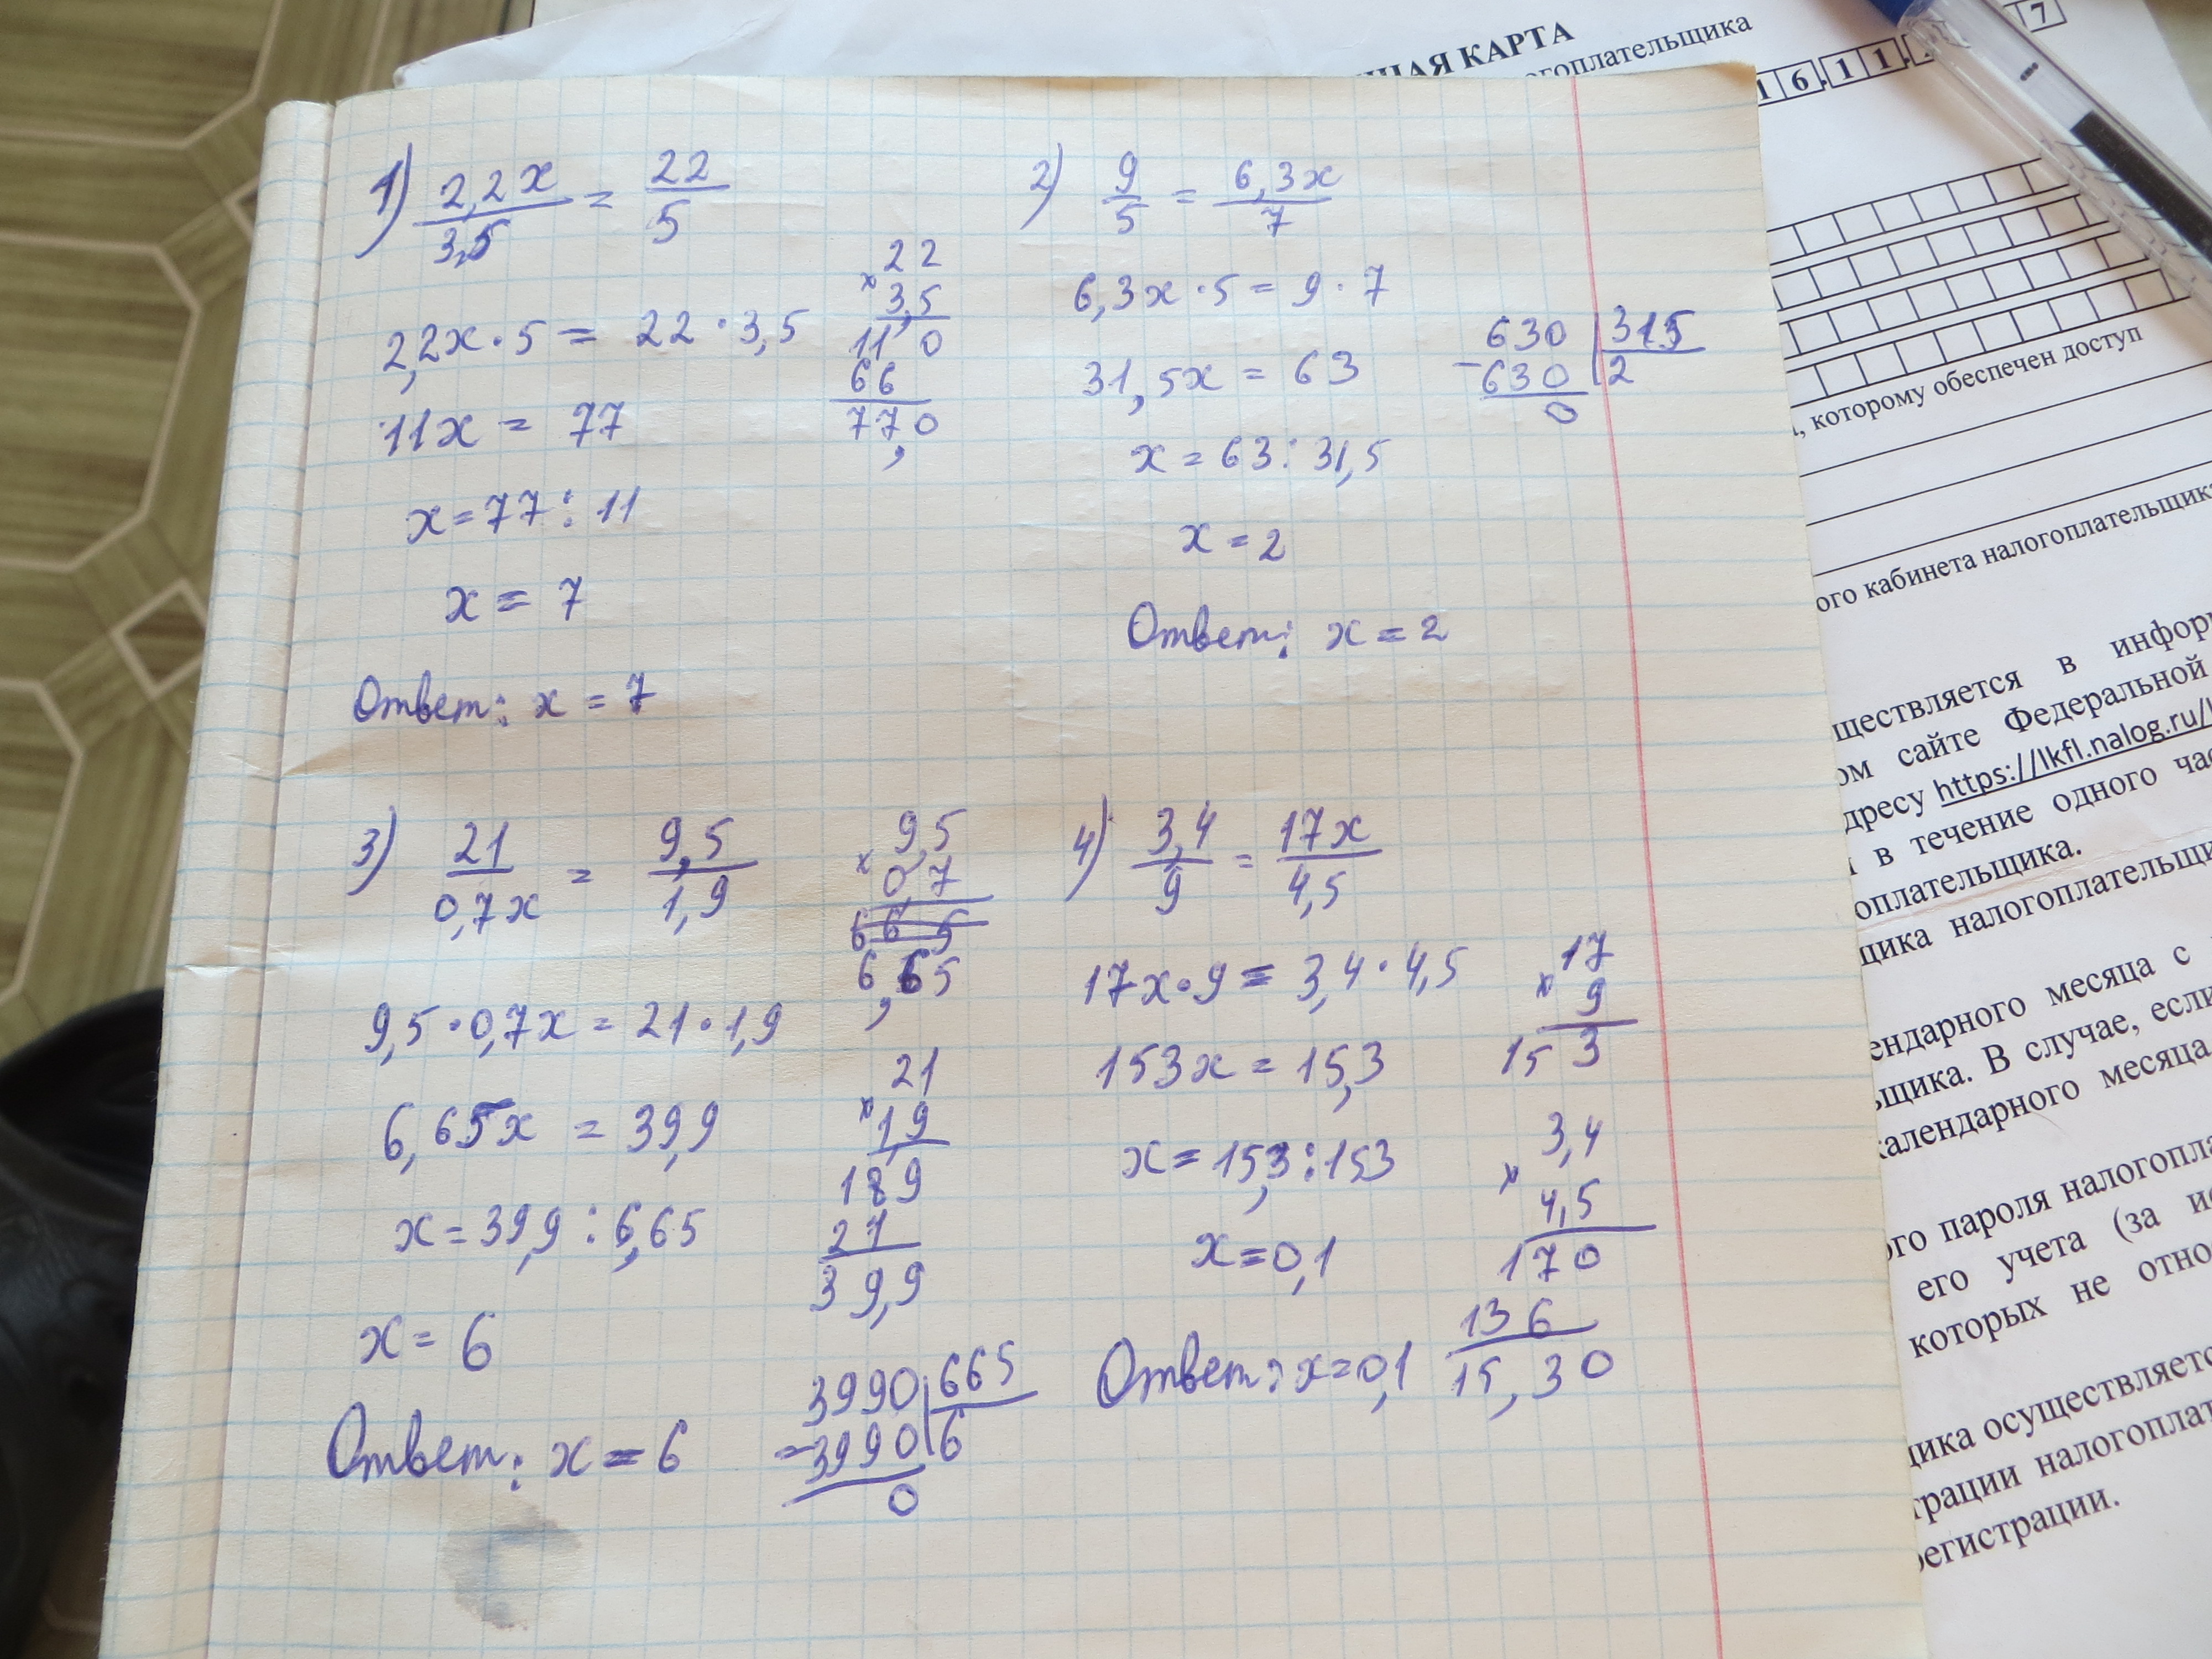 1) 2,2x/3,5 = 22/5
2,2x · 5 = 22 · 3,5
11x = 77
x = 77 : 11
x = 7
Ответ: x = 7
22
× 3,5
11 0
66
77,0
2) 9/5 = 6,3x/7
6,3x · 5 = 9 · 7
31,5x = 63
x = 63 : 31,5
x = 2
Ответ: x = 2
630 | 315
− 630 | 2
0
3) 21/0,7x = 9,5/1,9
9,5 · 0,7x = 21 · 1,9
6,65x = 39,9
x = 39,9 : 6,65
x = 6
Ответ: x = 6
9,5
× 0,7
6,65
21
× 1,9
189
21
39,9
3990 | 665
− 3990 | 6
0
4) 3,4/9 = 17x/4,5
17x · 9 = 3,4 · 4,5
153x = 15,3
x = 15,3 : 153
x = 0,1
Ответ: x = 0,1
17
× 9
153
3,4
× 4,5
170
136
15,30
КАРТА
1 6 . 1 1 .
7
, которому обеспечен доступ
кабинета налогоплательщика
в инфор
сайте Федеральной
https://lkfl.nalog.ru/
в течение одного час
налогоплательщи
месяца с
В случае, если
месяца
пароля налогопла
его учета (за
которых не отно
осуществляется
налогоплат
регистрации.